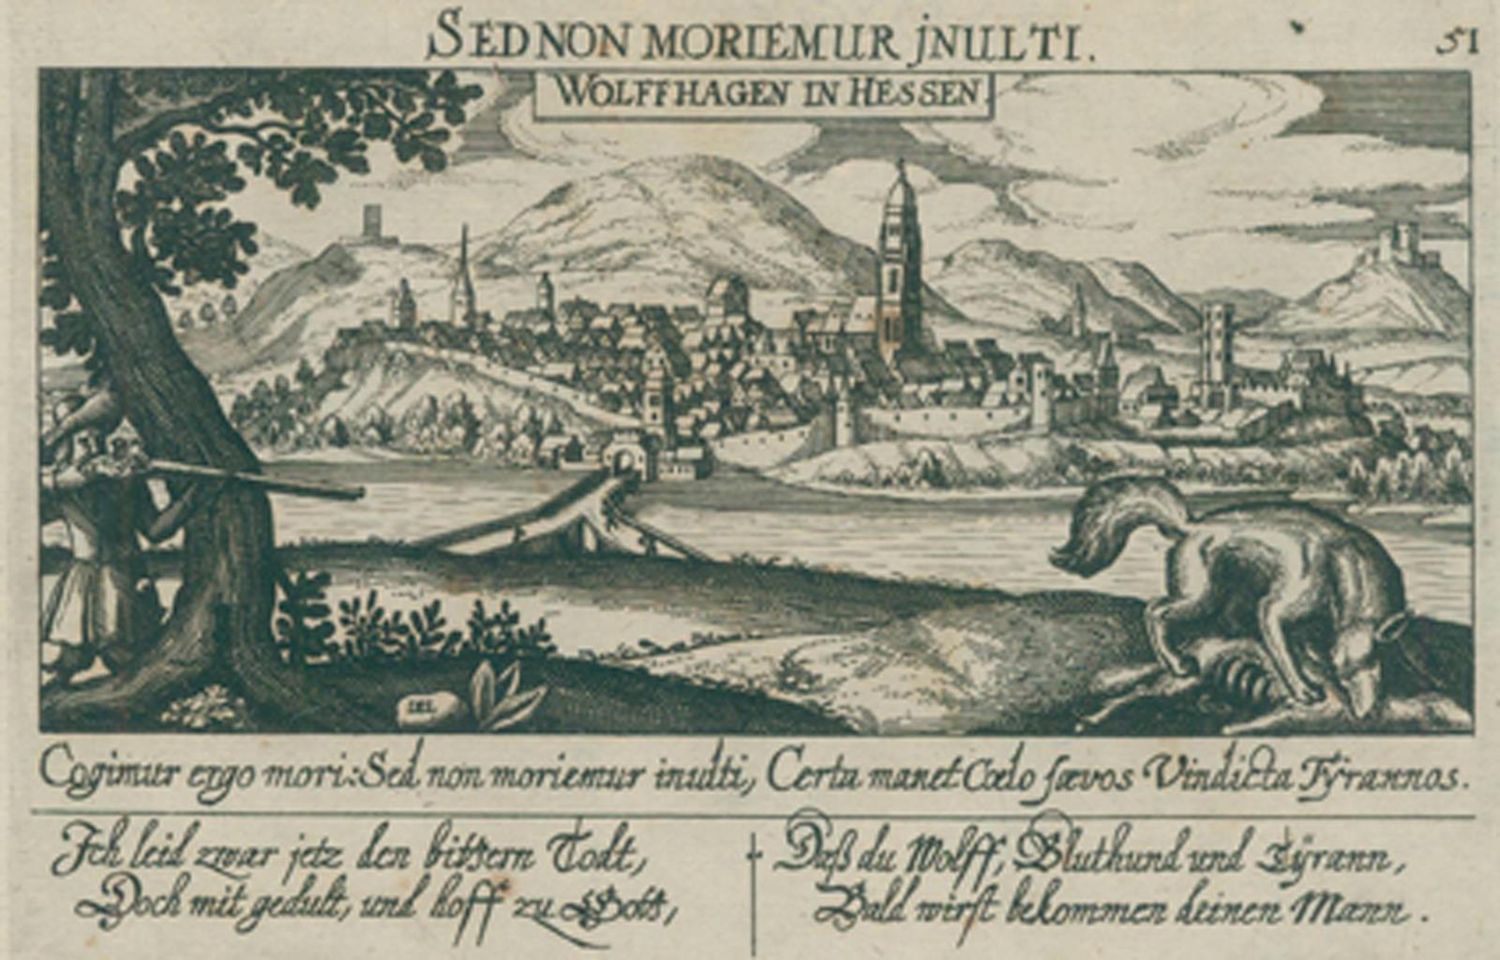 SED NON MORIEMUR jNULTI.
51
WOLFFHAGEN IN HESSEN
Cogimur ergo mori: Sed non moriemur inulti, Certa manet Cœlo sævos Vindicta Tÿrannos.
Ich leid zwar jetz den bittern Todt,
Doch mit gedult, und hoff zu Gott,
Daß du Wolff, Bluthund und Tÿrann,
Bald wirst bekommen deinen Mann.